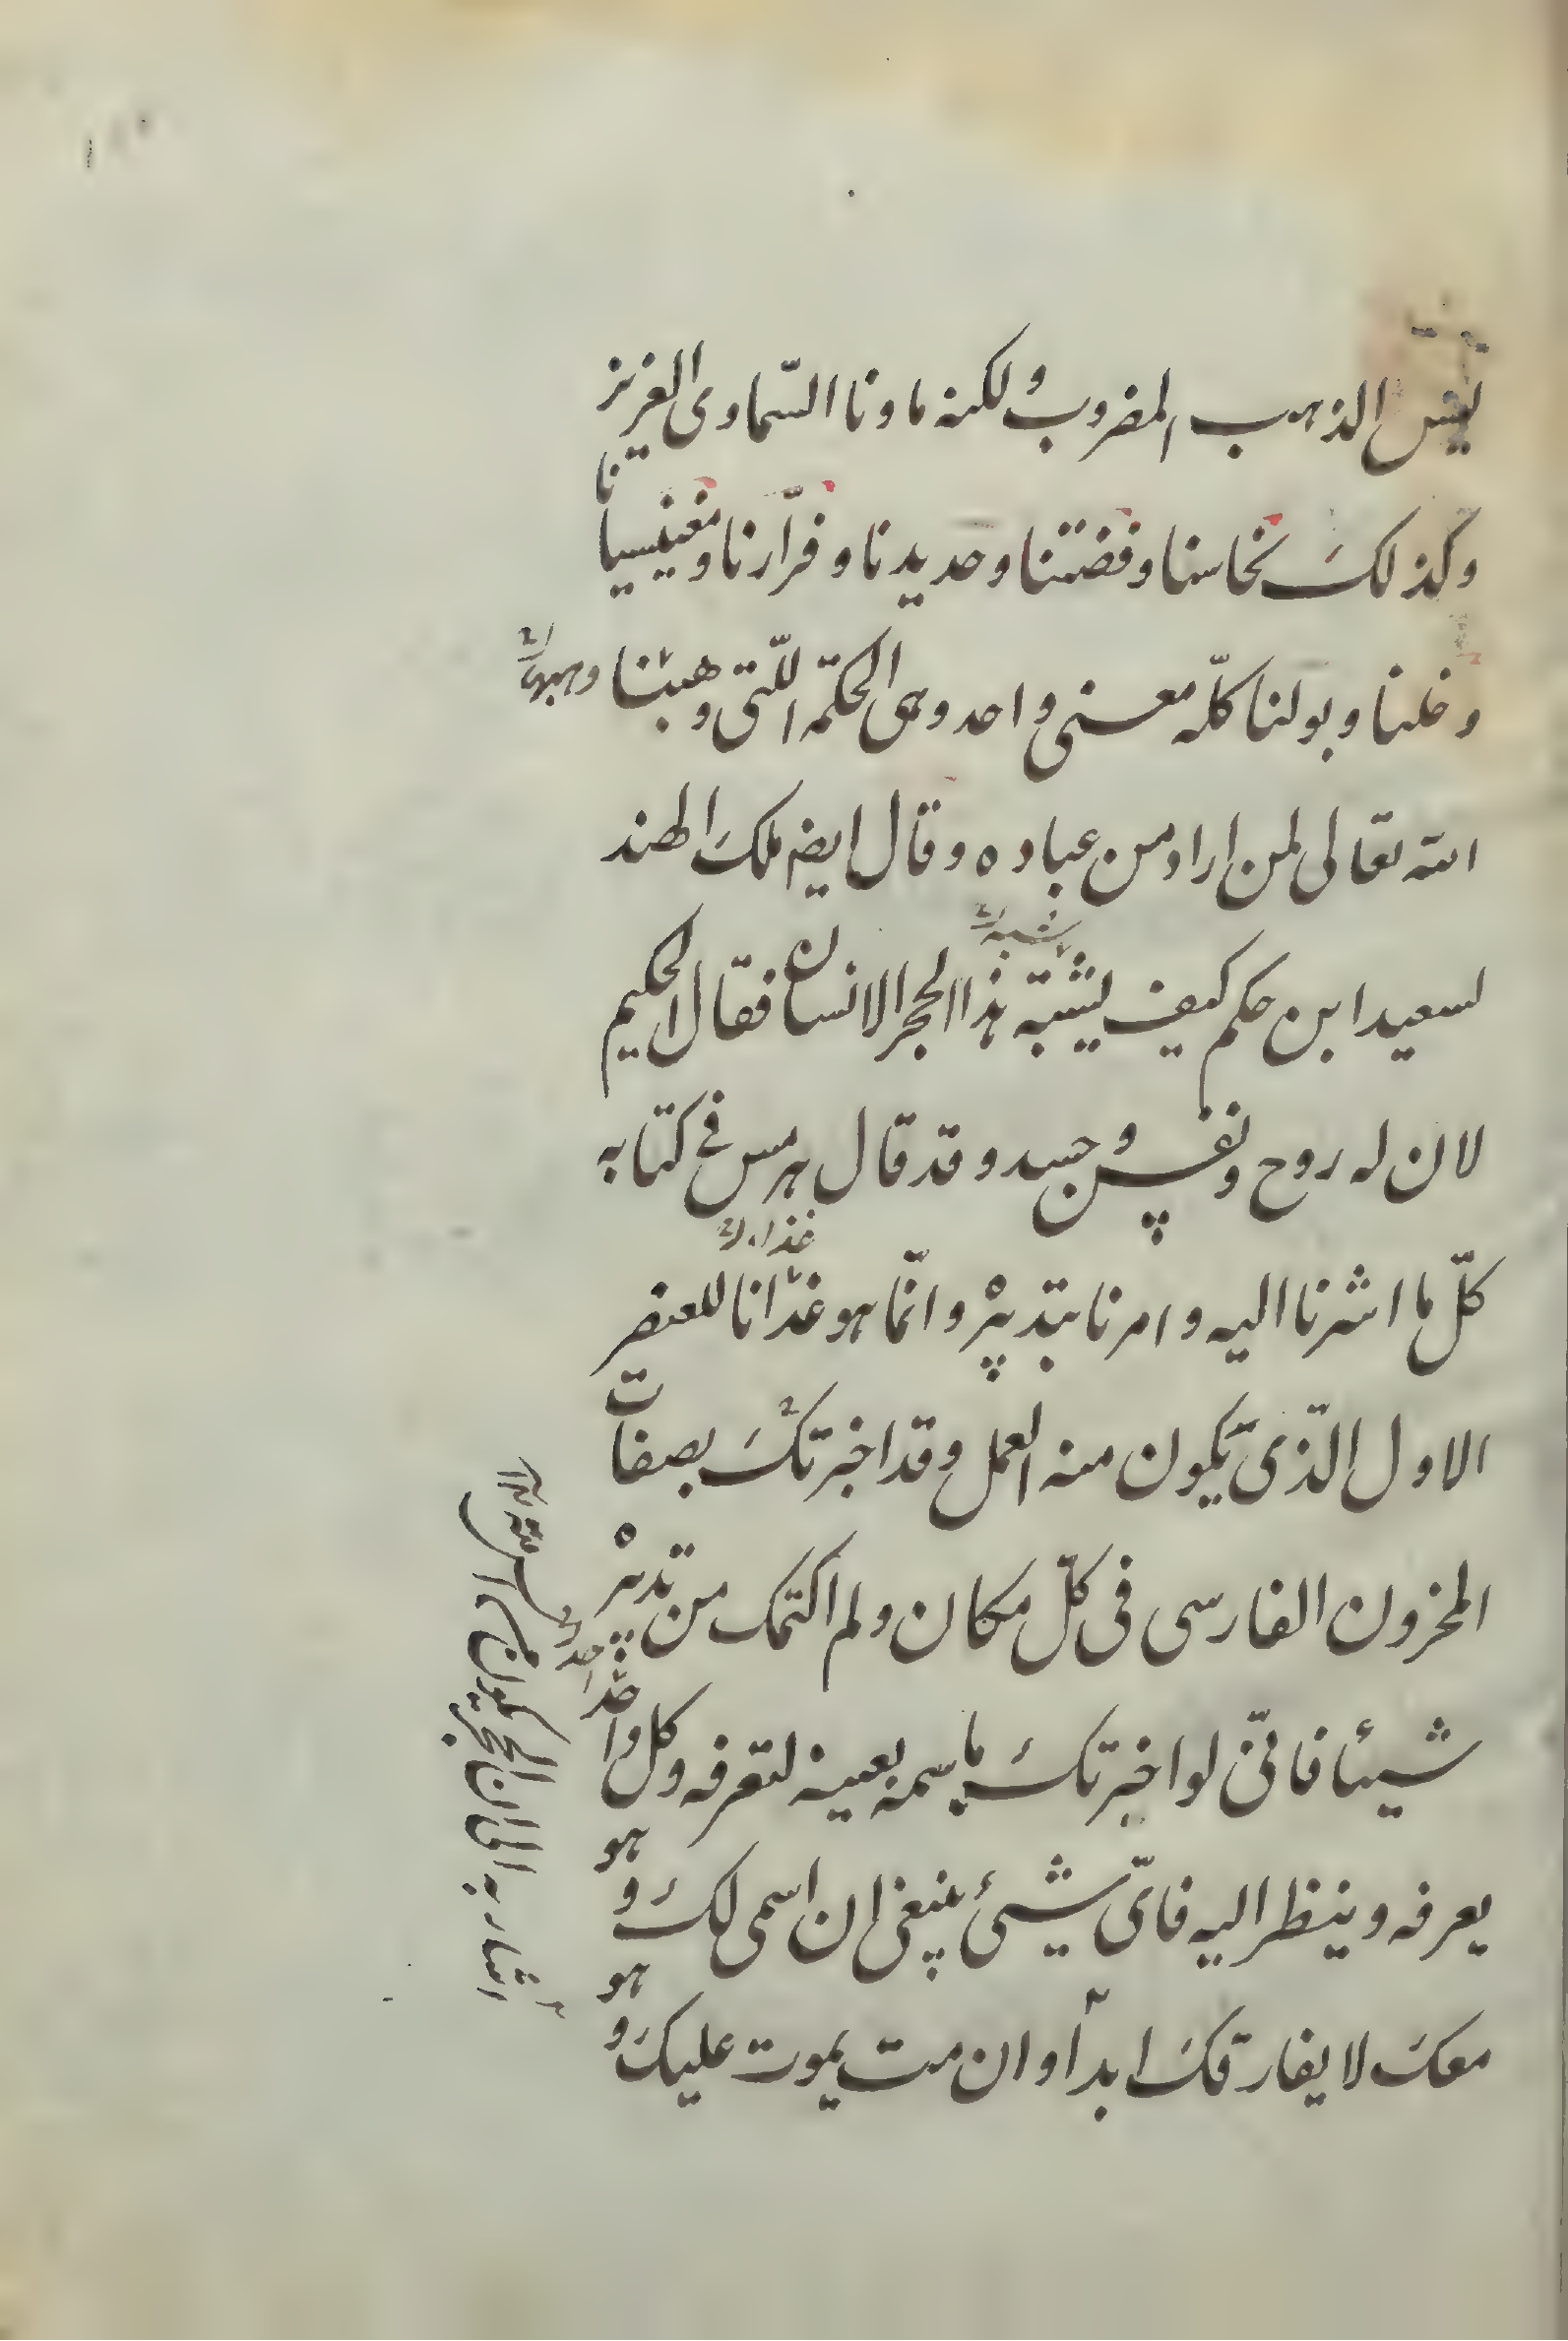 ليس الذهب المضروب ولكنه ماونا السّماوى العزيز
وكذلك نحاسنا وفضتنا وحديدنا وفرّارنا ومغنيسيانا
وخلنا وبولنا كلّه معنى واحد وهى الحكمة اللّتى وهبنا وهبها
الله تعالى لمن اراد من عباده وقال ايضه ملك الهند
شبه
لسعيد ابن حكم كيف يشبّه هذا الحجر الانسان فقال الحكيم
لان له روح ونفس وجسد وقد قال هرمس فى كتابه
غذاء
كلّ ما اشرنا اليه وامرنا بتدبيره وانّما هو غذانا للعنصر
الاول الّذى يكون منه العمل وقد اخبرتك بصفات
المخزون الفارسى فى كلّ مكان ولم اكتمك من تدبيره
شيئا فانّى لو اخبرتك باسمه بعينه لتعرفه وكل واحد احد
يعرفه وينظر اليه فاىّ شيئ ينبغى ان اسمى لك وهو
معك لا يفارقك ابداً وان مت يموت عليك وهو
اشار به الى ان الحجر